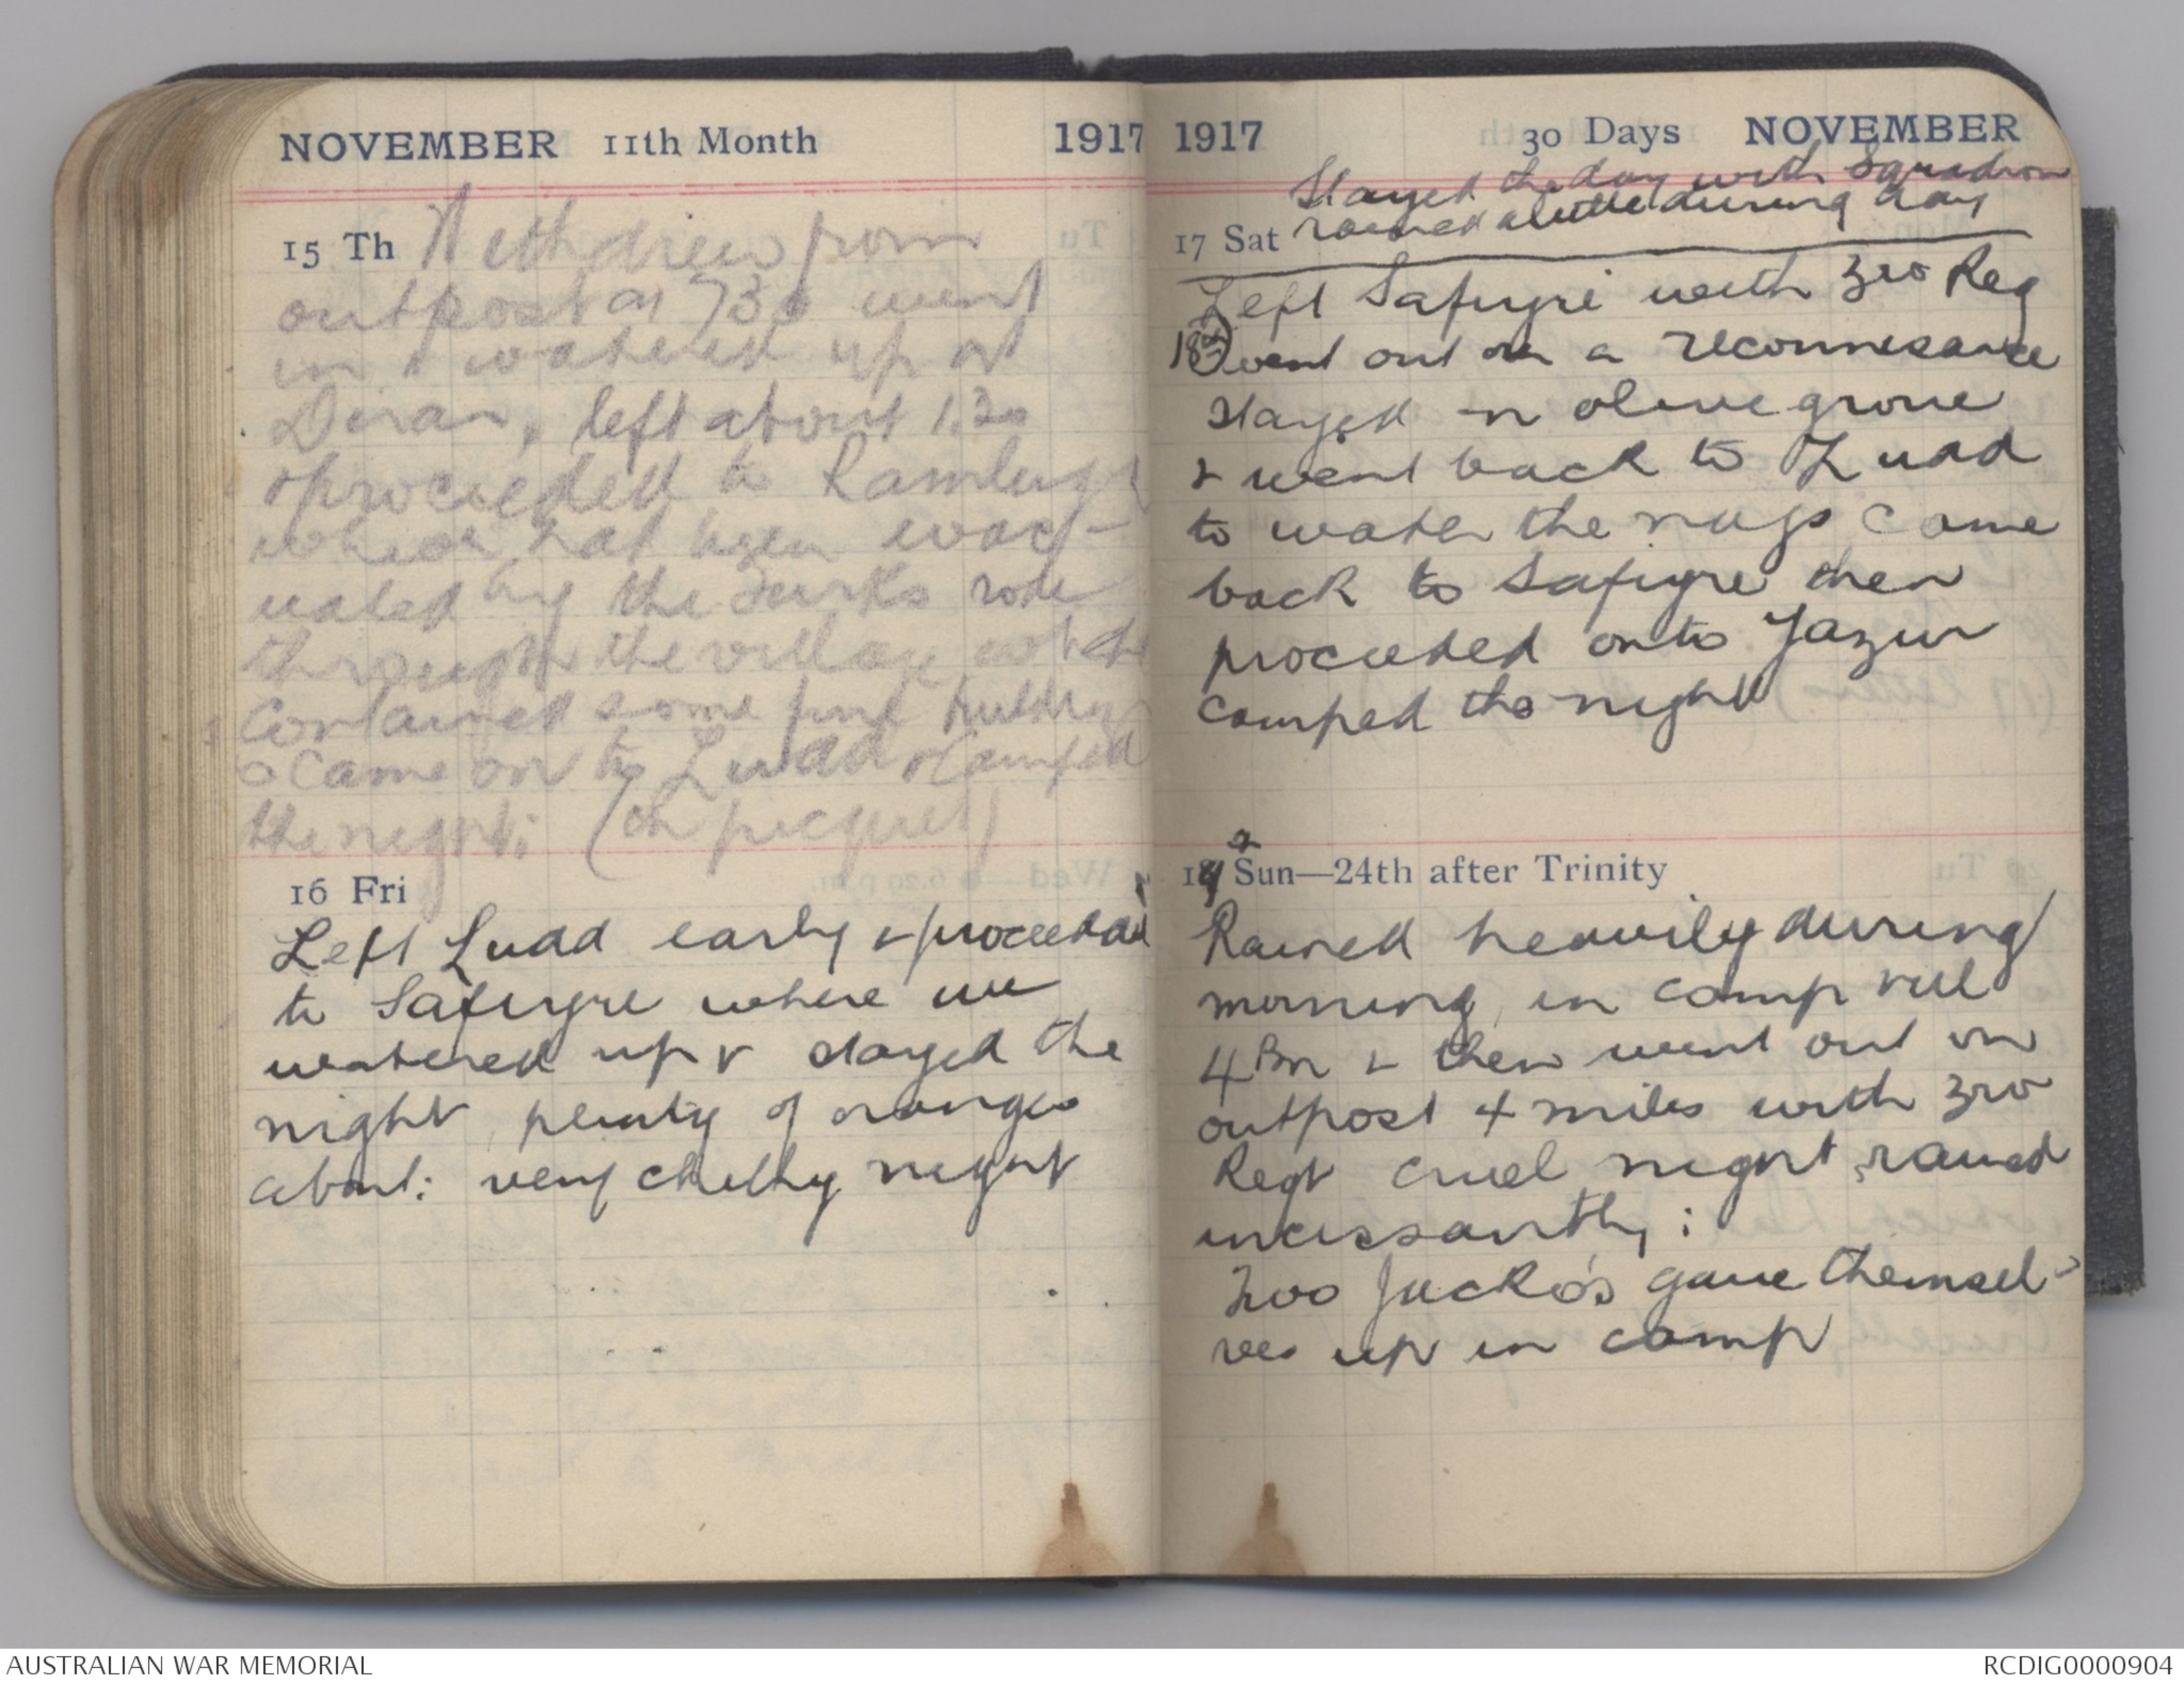 NOVEMBER 11th Month 1917
15 Th Withdrew from
outpost at 730 went
in & watered up at
Diran, left about 1.30
& proceeded to Ramleys
which had been evac-
uated by the Turks rode
through the village which
contained some fine buildings
& came on to Ludd & camped
the night; (on picquet)
16 Fri
Left Ludd early & proceeded
to Safuyre where we
watered up & stayed the
night, plenty of oranges
about: very chilly night
1917 30 Days NOVEMBER
Stayed the day with Squadron
17 Sat rained a little during day
Left Safuyri with 3rd Reg
18th went out on a reconnesance
stayed in olive grove
& went back to Ludd
to water the nags came
back to Safuyre then
proceeded onto Yazur
camped the night
19 Sun—24th after Trinity
Rained heavily during
morning, in camp till
4 Pm & then went out on
outpost 4 miles with 3rd
Regt cruel night, rained
incessantly;
Two Jacko's gave themsel-
ves up in camp
AUSTRALIAN WAR MEMORIAL RCDIG0000904